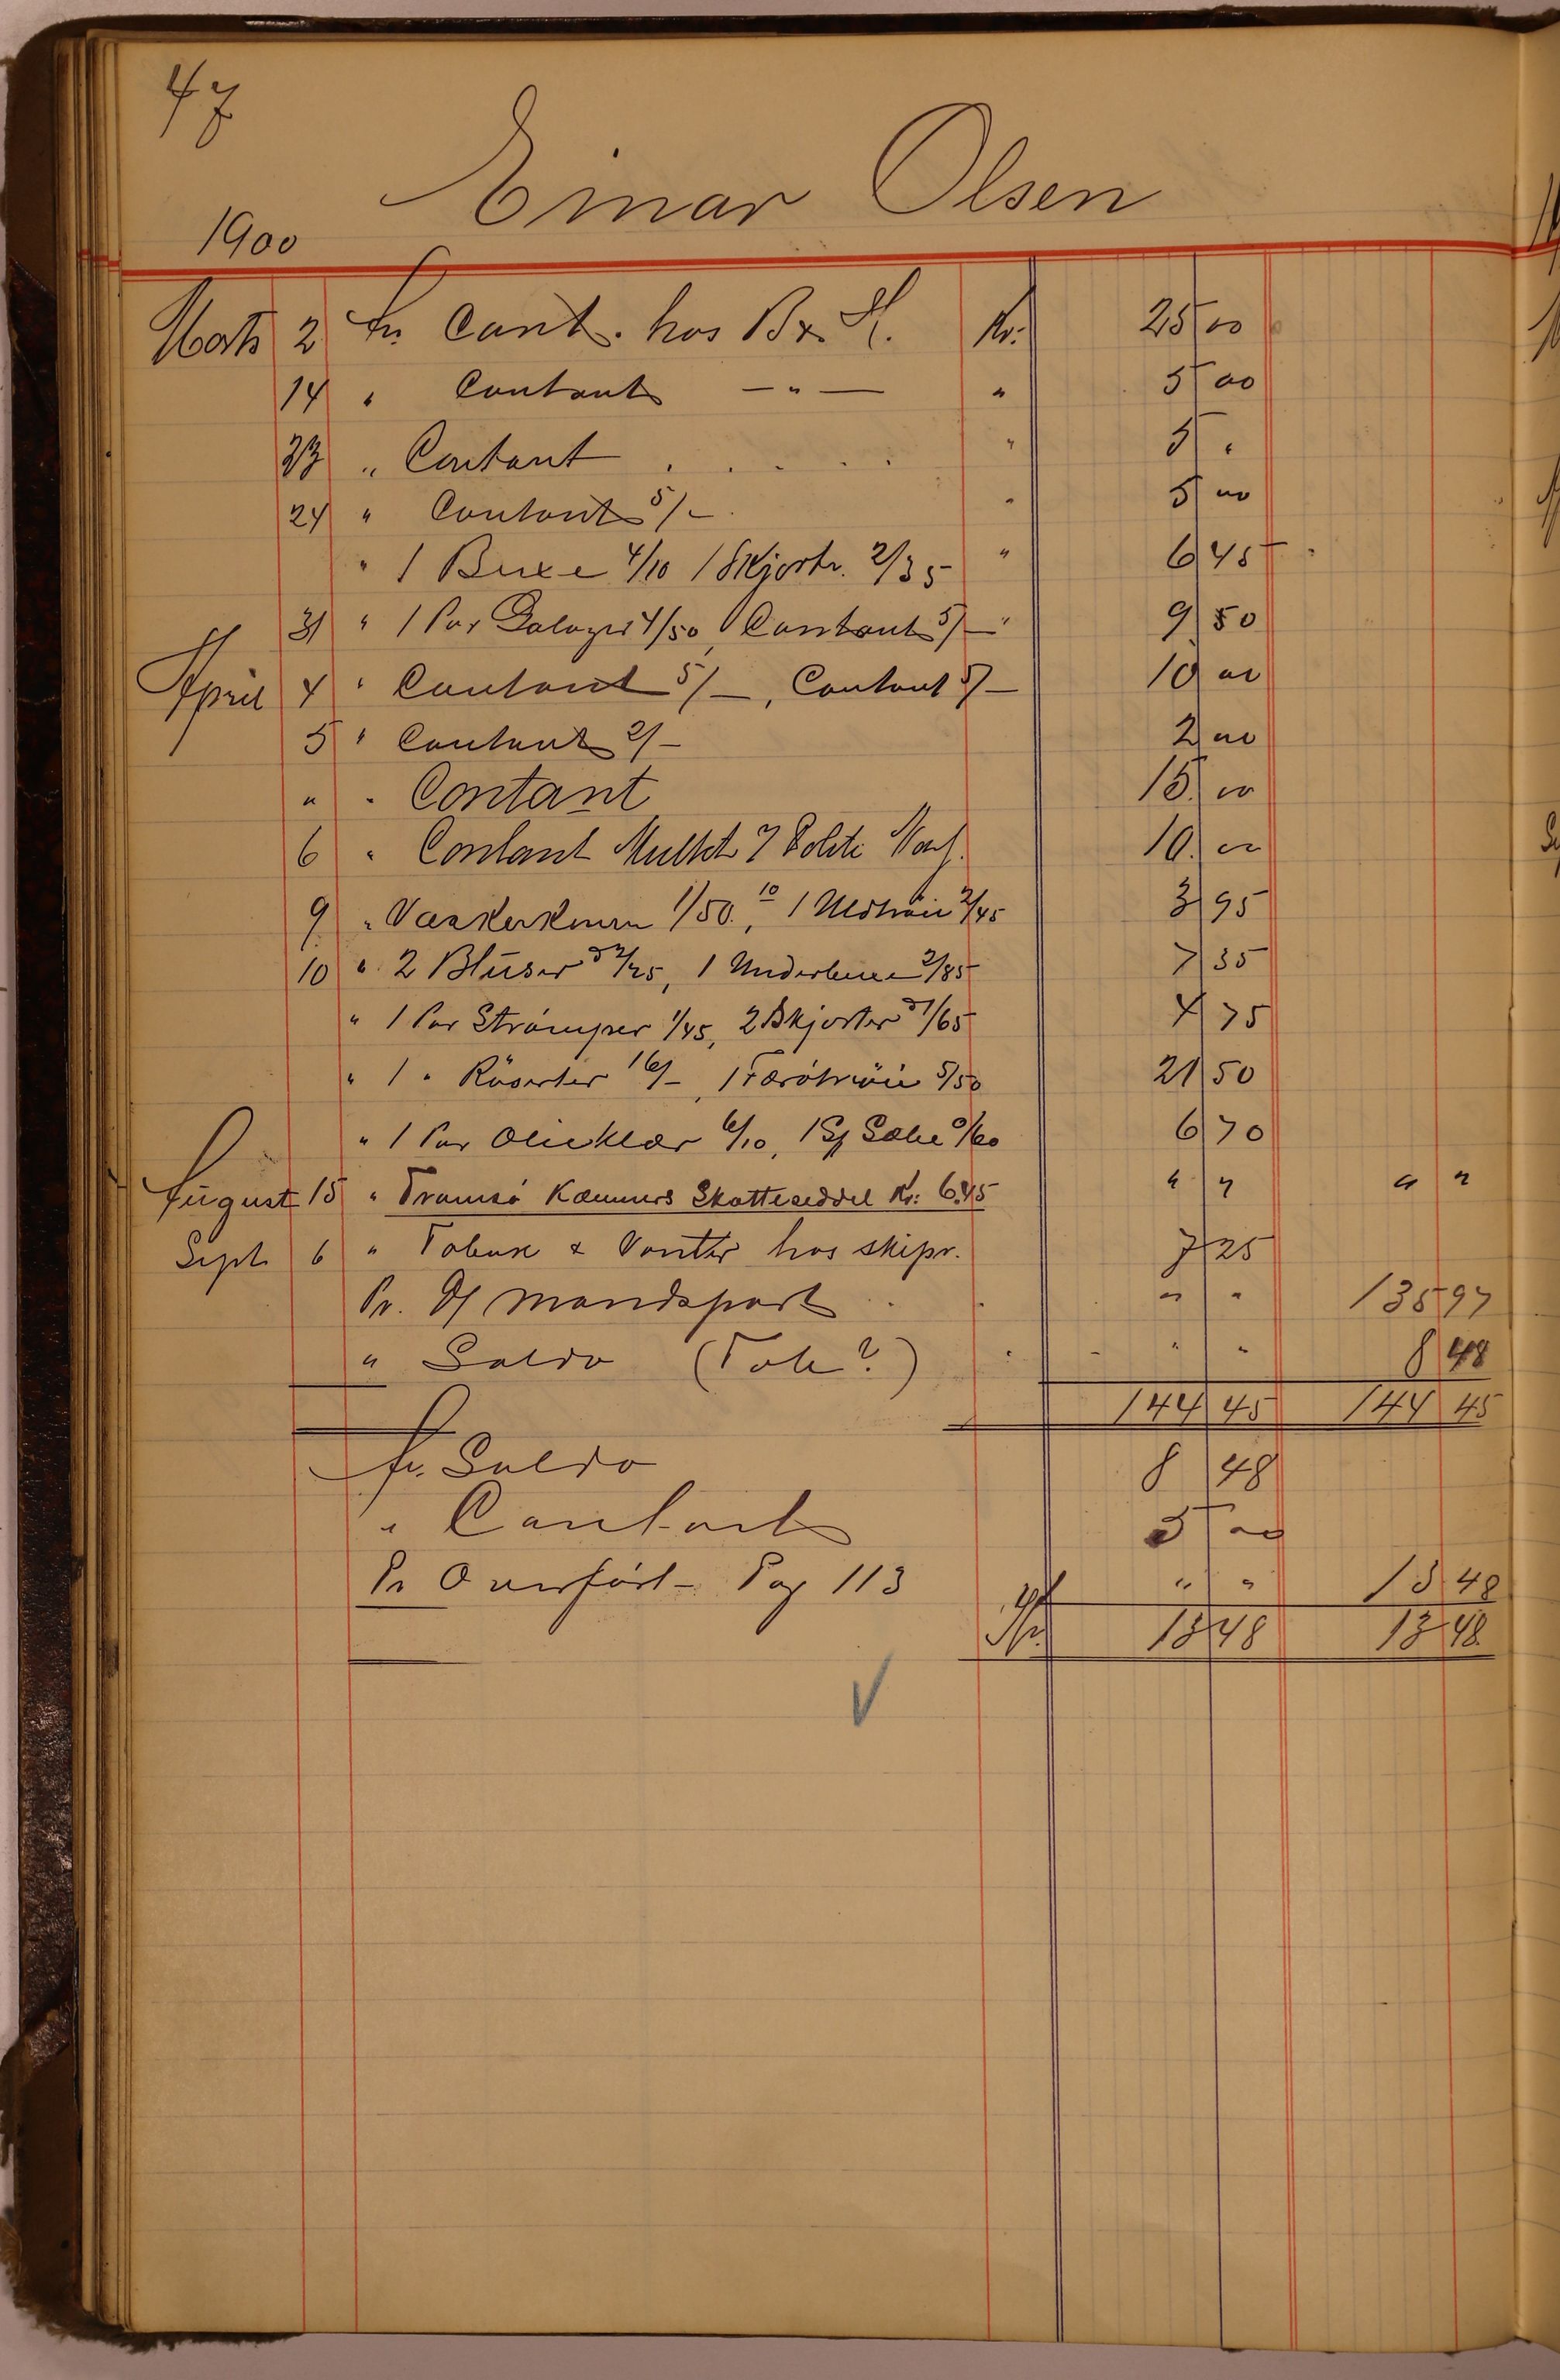 47
Einar Olsen
1900
Marts 2 An Cont. hos Br. K. Kr. 25 00
14 " Contant — " — " 5 00
23 " Contant . . . . . " 5 "
24 " Contant 5/- " 5 00
" 1 Buxe 4/10 1 Skjorte. 2/35 " 6 45
31 " 1 Par Galoger 4/50, Contant 5/- " 9 50
April 4 " Contant 5/-, Contant 5/- 10 00
5 " Contant 2/- 2 00
" " Contant 15 00
6 " Contant Mulkt 10 00
9 " 1/50, 1 Uldtröie 2/45 3 95
10 " 2 Blüser á 2/25, 1 Underbuxe 2/85 7 35
" 1 Par Strømper 1/45, 2 Skjorter á 1/65 4 75
" 1 " Rüserter 16/-, 1 Færötröie 5/50 21 50
" 1 Par Olieklær 6/10, 1 Sæbe 0/60 6 70
August 15 " Tromsø Kæmners Skatteseddel Kr: 6.45 " " " "
Sept 6 " Tobak & Vanter hos skipr. 7 25
Pr. D/ Mandspart " " 135 97
" Saldo (Tab?) " " 8 48
144 45 144 45
An Saldo 8 48
" Contant 5 00
Pr Overført - Pag 113 " " 13 48
Kr. 13 48 13 48